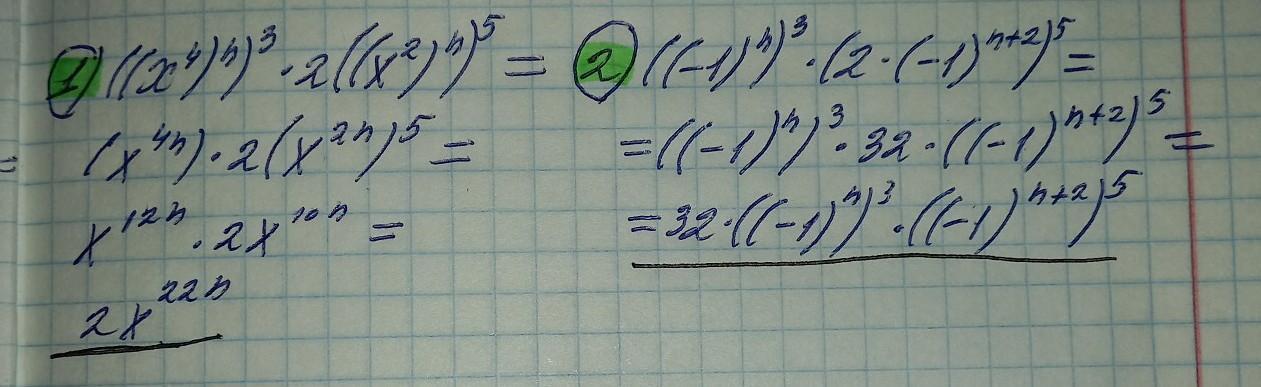 1) ((x⁴)ⁿ)³ · 2((x²)ⁿ)⁵ =
(x⁴ⁿ) · 2(x²ⁿ)⁵ =
x¹²ⁿ · 2x¹⁰ⁿ =
2x²²ⁿ
2) ((-1)ⁿ)³ · (2 · (-1)ⁿ⁺²)⁵ =
= ((-1)ⁿ)³ · 32 · ((-1)ⁿ⁺²)⁵ =
= 32 · ((-1)ⁿ)³ · ((-1)ⁿ⁺²)⁵